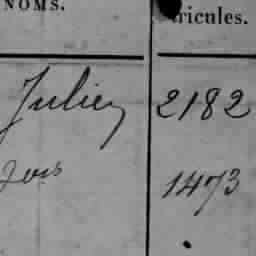 NOMS. tricules.
Julien 2182
1473